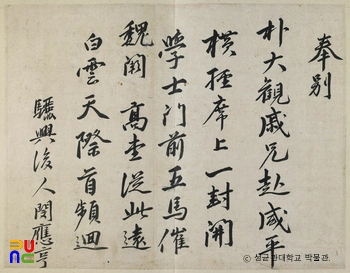 奉别
朴大觀戚兄赴咸平
橫經席上一封開
學士門前五馬催
魏闕高登從此遠
白雲天際首頻迴
驪興後人閔應亨
RUNC
© 성균관대학교 박물관.